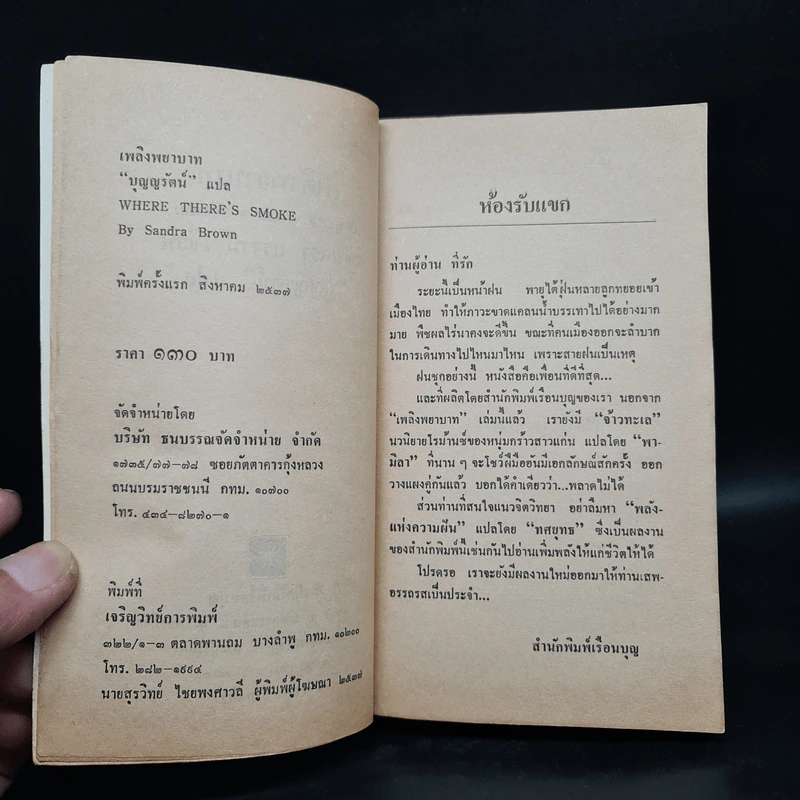 เพลิงพยาบาท
“บุญญรัตน์” แปล
WHERE THERE'S SMOKE
By Sandra Brown
พิมพ์ครั้งแรก สิงหาคม ๒๕๓๗
ราคา ๑๓๐ บาท
จัดจำหน่ายโดย
บริษัท ธนบรรณจัดจำหน่าย จำกัด
๑๗๓๕/๗๗-๗๘ ซอยภัตตาคารกุ้งหลวง
ถนนบรมราชชนนี กทม. ๑๐๗๐๐
โทร. ๔๓๔-๘๒๗๐-๑
พิมพ์ที่
เจริญวิทย์การพิมพ์
๓๒๒/๑-๓ ตลาดพานถม บางลำพู กทม. ๑๐๒๐๐
โทร. ๒๘๒-๑๙๙๔
นายสุรวิทย์ ไชยพงศาวลี ผู้พิมพ์ผู้โฆษณา ๒๕๓๗
ห้องรับแขก
ท่านผู้อ่าน ที่รัก
ระยะนี้เป็นหน้าฝน พายุไต้ฝุ่นหลายลูกทยอยเข้า
เมืองไทย ทำให้ภาวะขาดแคลนน้ำบรรเทาไปได้อย่างมาก
มาย พืชผลไร่นาคงจะดีขึ้น ขณะที่คนเมืองออกจะลำบาก
ในการเดินทางไปไหนมาไหน เพราะสายฝนเป็นเหตุ
ฝนชุกอย่างนี้ หนังสือคือเพื่อนที่ดีที่สุด...
และที่ผลิตโดยสำนักพิมพ์เรือนบุญของเรา นอกจาก
“เพลิงพยาบาท” เล่มนี้แล้ว เรายังมี “จ้าวทะเล”
นวนิยายโรม้านซ์ของหนุ่มกร้าวสาวแก่น แปลโดย “พา-
มิลา” ที่นาน ๆ จะโชว์ฝีมืออันมีเอกลักษณ์สักครั้ง ออก
วางแผงคู่กันแล้ว บอกได้คำเดียวว่า...พลาดไม่ได้
ส่วนท่านที่สนใจแนวจิตวิทยา อย่าลืมหา “พลัง-
แห่งความฝัน” แปลโดย “ทศยุทธ” ซึ่งเป็นผลงาน
ของสำนักพิมพ์นี้เช่นกันไปอ่านเพิ่มพลังให้แก่ชีวิตให้ได้
โปรดรอ เราจะยังมีผลงานใหม่ออกมาให้ท่านเสพ-
อรรถรสเป็นประจำ...
สำนักพิมพ์เรือนบุญ